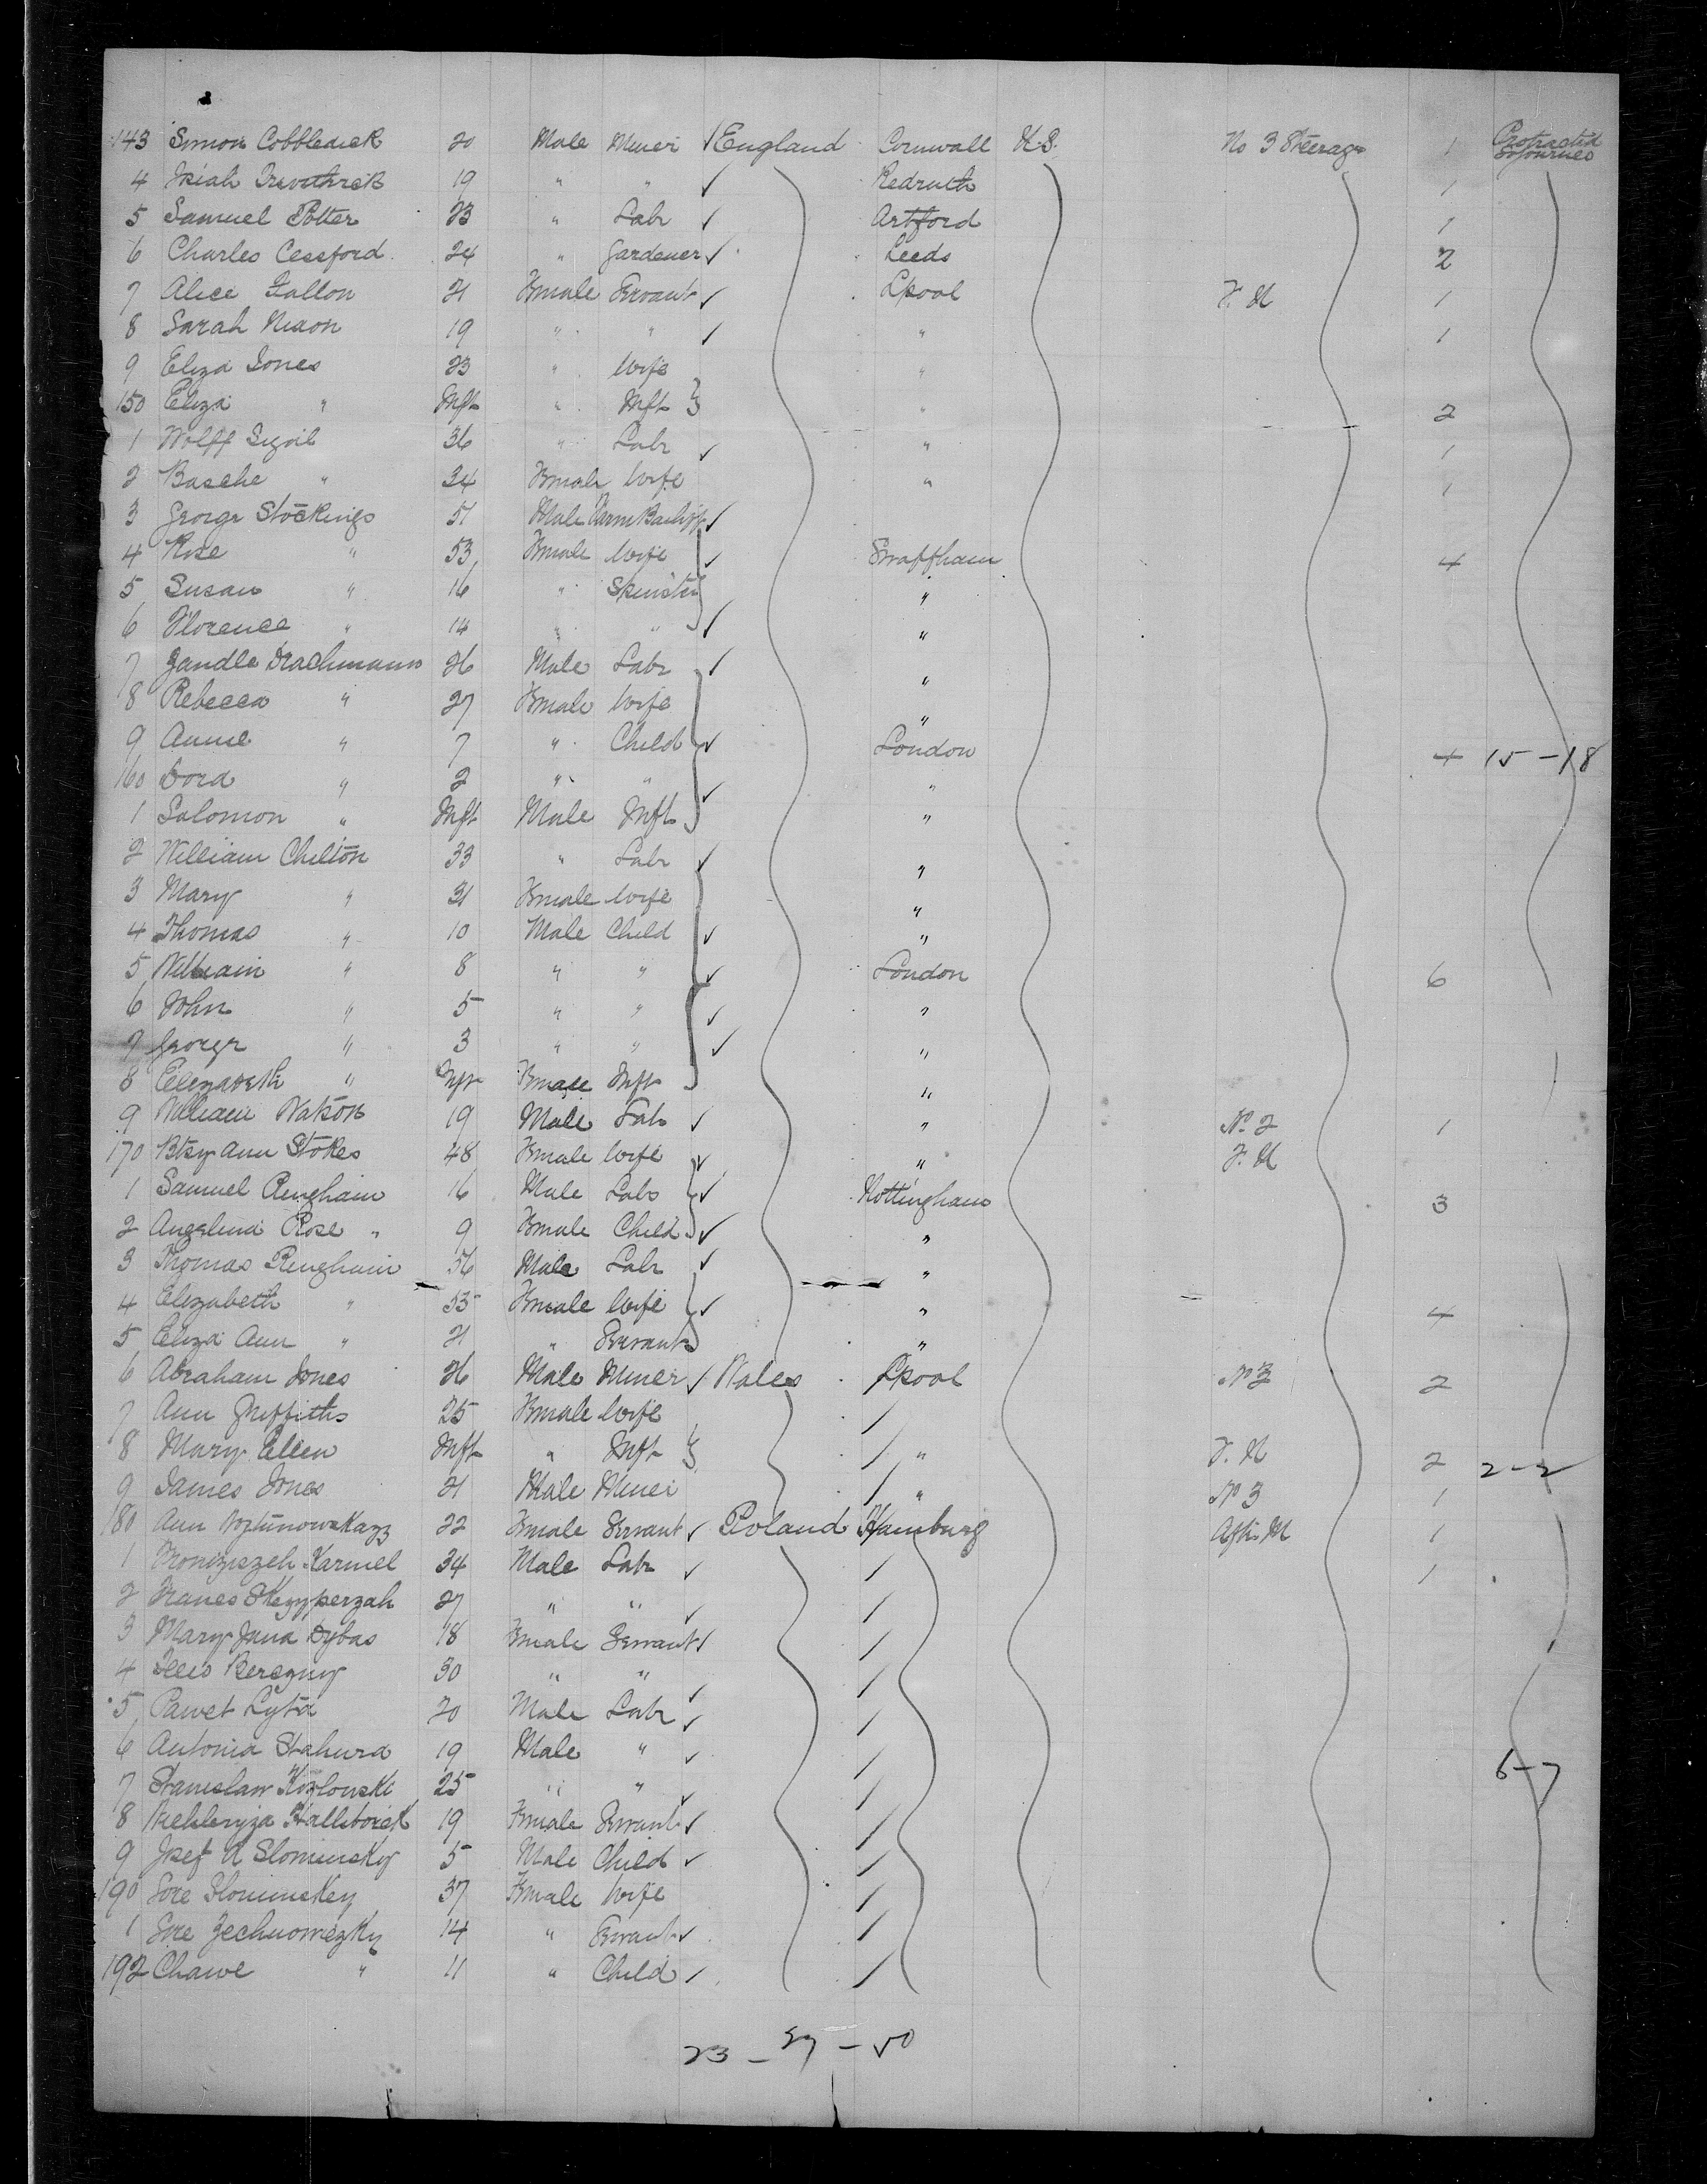 143 Simon Cobbledick 20 Male Miner ✓ England Cornwall U.S. No 3 Steerage 1 Protracted Sojourner
4 Isiah Trevithrick 19 " " ✓ Redruth 1
5 Samuel Potter 23 " Labr ✓ Artford 1
6 Charles Cessford 24 " Gardener ✓ Leeds 2
7 Alice Fallon 21 Female Servant ✓ Lpool F. M 1
8 Sarah Nixon 19 " " ✓ " 1
9 Eliza Jones 23 " Wife "
150 Eliza " Inft " Inft } " 2
1 Wolff 36 " Labr ✓ " 1
2 Basche " 34 Female Wife " 1
3 George Stockings 51 Male Farm Bailiff ✓
4 Rose " 53 Female Wife ✓ Swaffham 4
5 Susan " 16 " Spinster "
6 Florence " 14 " " ✓ "
7 Jandle Drachmann 26 Male Labr ✓ "
8 Rebecca " 27 Female Wife "
9 Annie " 7 " Child ✓ London 4 15-18
160 Dora " 2 " " ✓ "
1 Salomon " Inft Male Inft "
2 William Chilton 33 " Labr ✓ "
3 Mary " 31 Female Wife "
4 Thomas " 10 Male Child ✓ "
5 William " 8 " " ✓ London 6
6 John " 5 " " ✓ "
7 George " 3 " " ✓ "
8 Elizabeth " Inft Female Inft "
9 William Watson 19 Male Lab ✓ " No 2 1
170 Btsy Ann Stokes 48 Female Wife ✓ " F. M
1 Samuel Renghain 16 Male Labr ✓ Nottingham 3
2 Angelina Rose " 9 Female Child ✓ "
3 Thomas Renghain 56 Male Labr ✓ "
4 Elizabeth " 55 Female Wife ✓ " 4
5 Eliza Ann " 21 " Servant "
6 Abraham Jones 26 Male Miner ✓ Wales Lpool No 3 2
7 Ann Griffiths 25 Female Wife /
8 Mary Ellen Inft " Inft } / " F. M 2 2-2
9 James Jones 21 Male Miner / " No 3 1
180 Ann 22 Female Servant ✓ Poland Hamburg Aft. M 1
1 Karmel 34 Male Labr ✓ / 1
2 Franes Skezyperzah 27 " " ✓ /
3 Mary Jana Dybas 18 Female Servant ✓ /
4 Berezny 30 " " ✓ /
5 Pawet Lyta 20 Male Labr ✓ /
6 Antonia Stahura 19 Male " ✓ /
7 Stanislaw Kozlonski 25 " " ✓ / 6-7
8 19 Female Servant ✓ /
9 Josef A Slominsky 5 Male Child ✓ /
190 Sore Slominskey 37 Female Wife /
1 Sore Zechnowiezky 14 " Servant ✓ /
192 Chawe " 11 " Child ✓ /
23 - 27 - 50